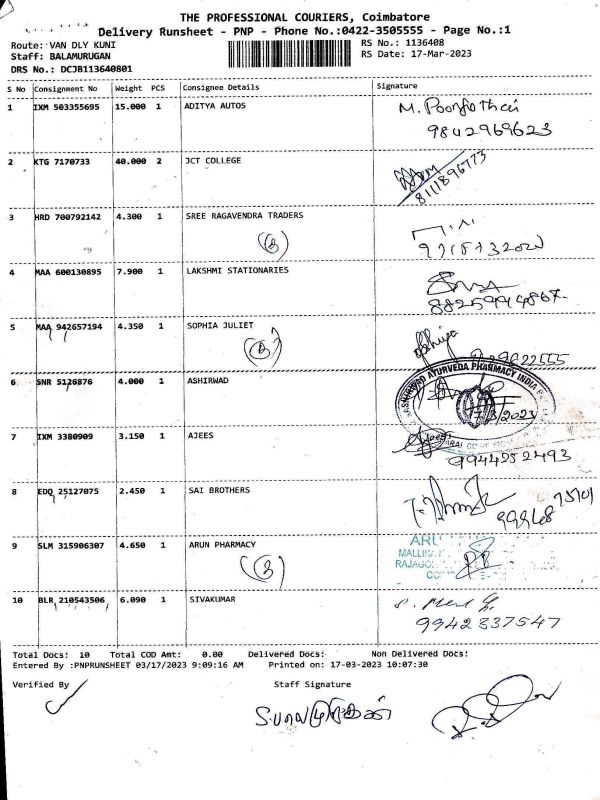 THE PROFESSIONAL COURIERS, Coimbatore
Delivery Runsheet - PNP - Phone No.:0422-3505555 - Page No.:1
Route: VAN DLY KUNI RS No.: 1136408
Staff: BALAMURUGAN RS Date: 17-Mar-2023
DRS No.: DCJB113640801
S No Consignment No Weight PCS Consignee Details Signature
1 IXM 503355695 15.000 1 ADITYA AUTOS
9842969623
2 KTG 7170733 40.000 2 JCT COLLEGE
8111896773
3 HRD 700792142 4.300 1 SREE RAGAVENDRA TRADERS
4 MAA 600130895 7.900 1 LAKSHMI STATIONARIES
5 MAA 942657194 4.350 1 SOPHIA JULIET
6 SNR 5126876 4.000 1 ASHIRWAD
ASHIRWAD AYURVEDA PHARMACY INDIA
7 IXM 3380909 3.150 1 AJEES
9944252493
8 EDQ 25127075 2.450 1 SAI BROTHERS
9 SLM 315906307 4.650 1 ARUN PHARMACY
10 BLR 210543506 6.090 1 SIVAKUMAR
9942837547
Total Docs: 10 Total COD Amt: 0.00 Delivered Docs: Non Delivered Docs:
Entered By :PNPRUNSHEET 03/17/2023 9:09:16 AM Printed on: 17-03-2023 10:07:30
Verified By Staff Signature